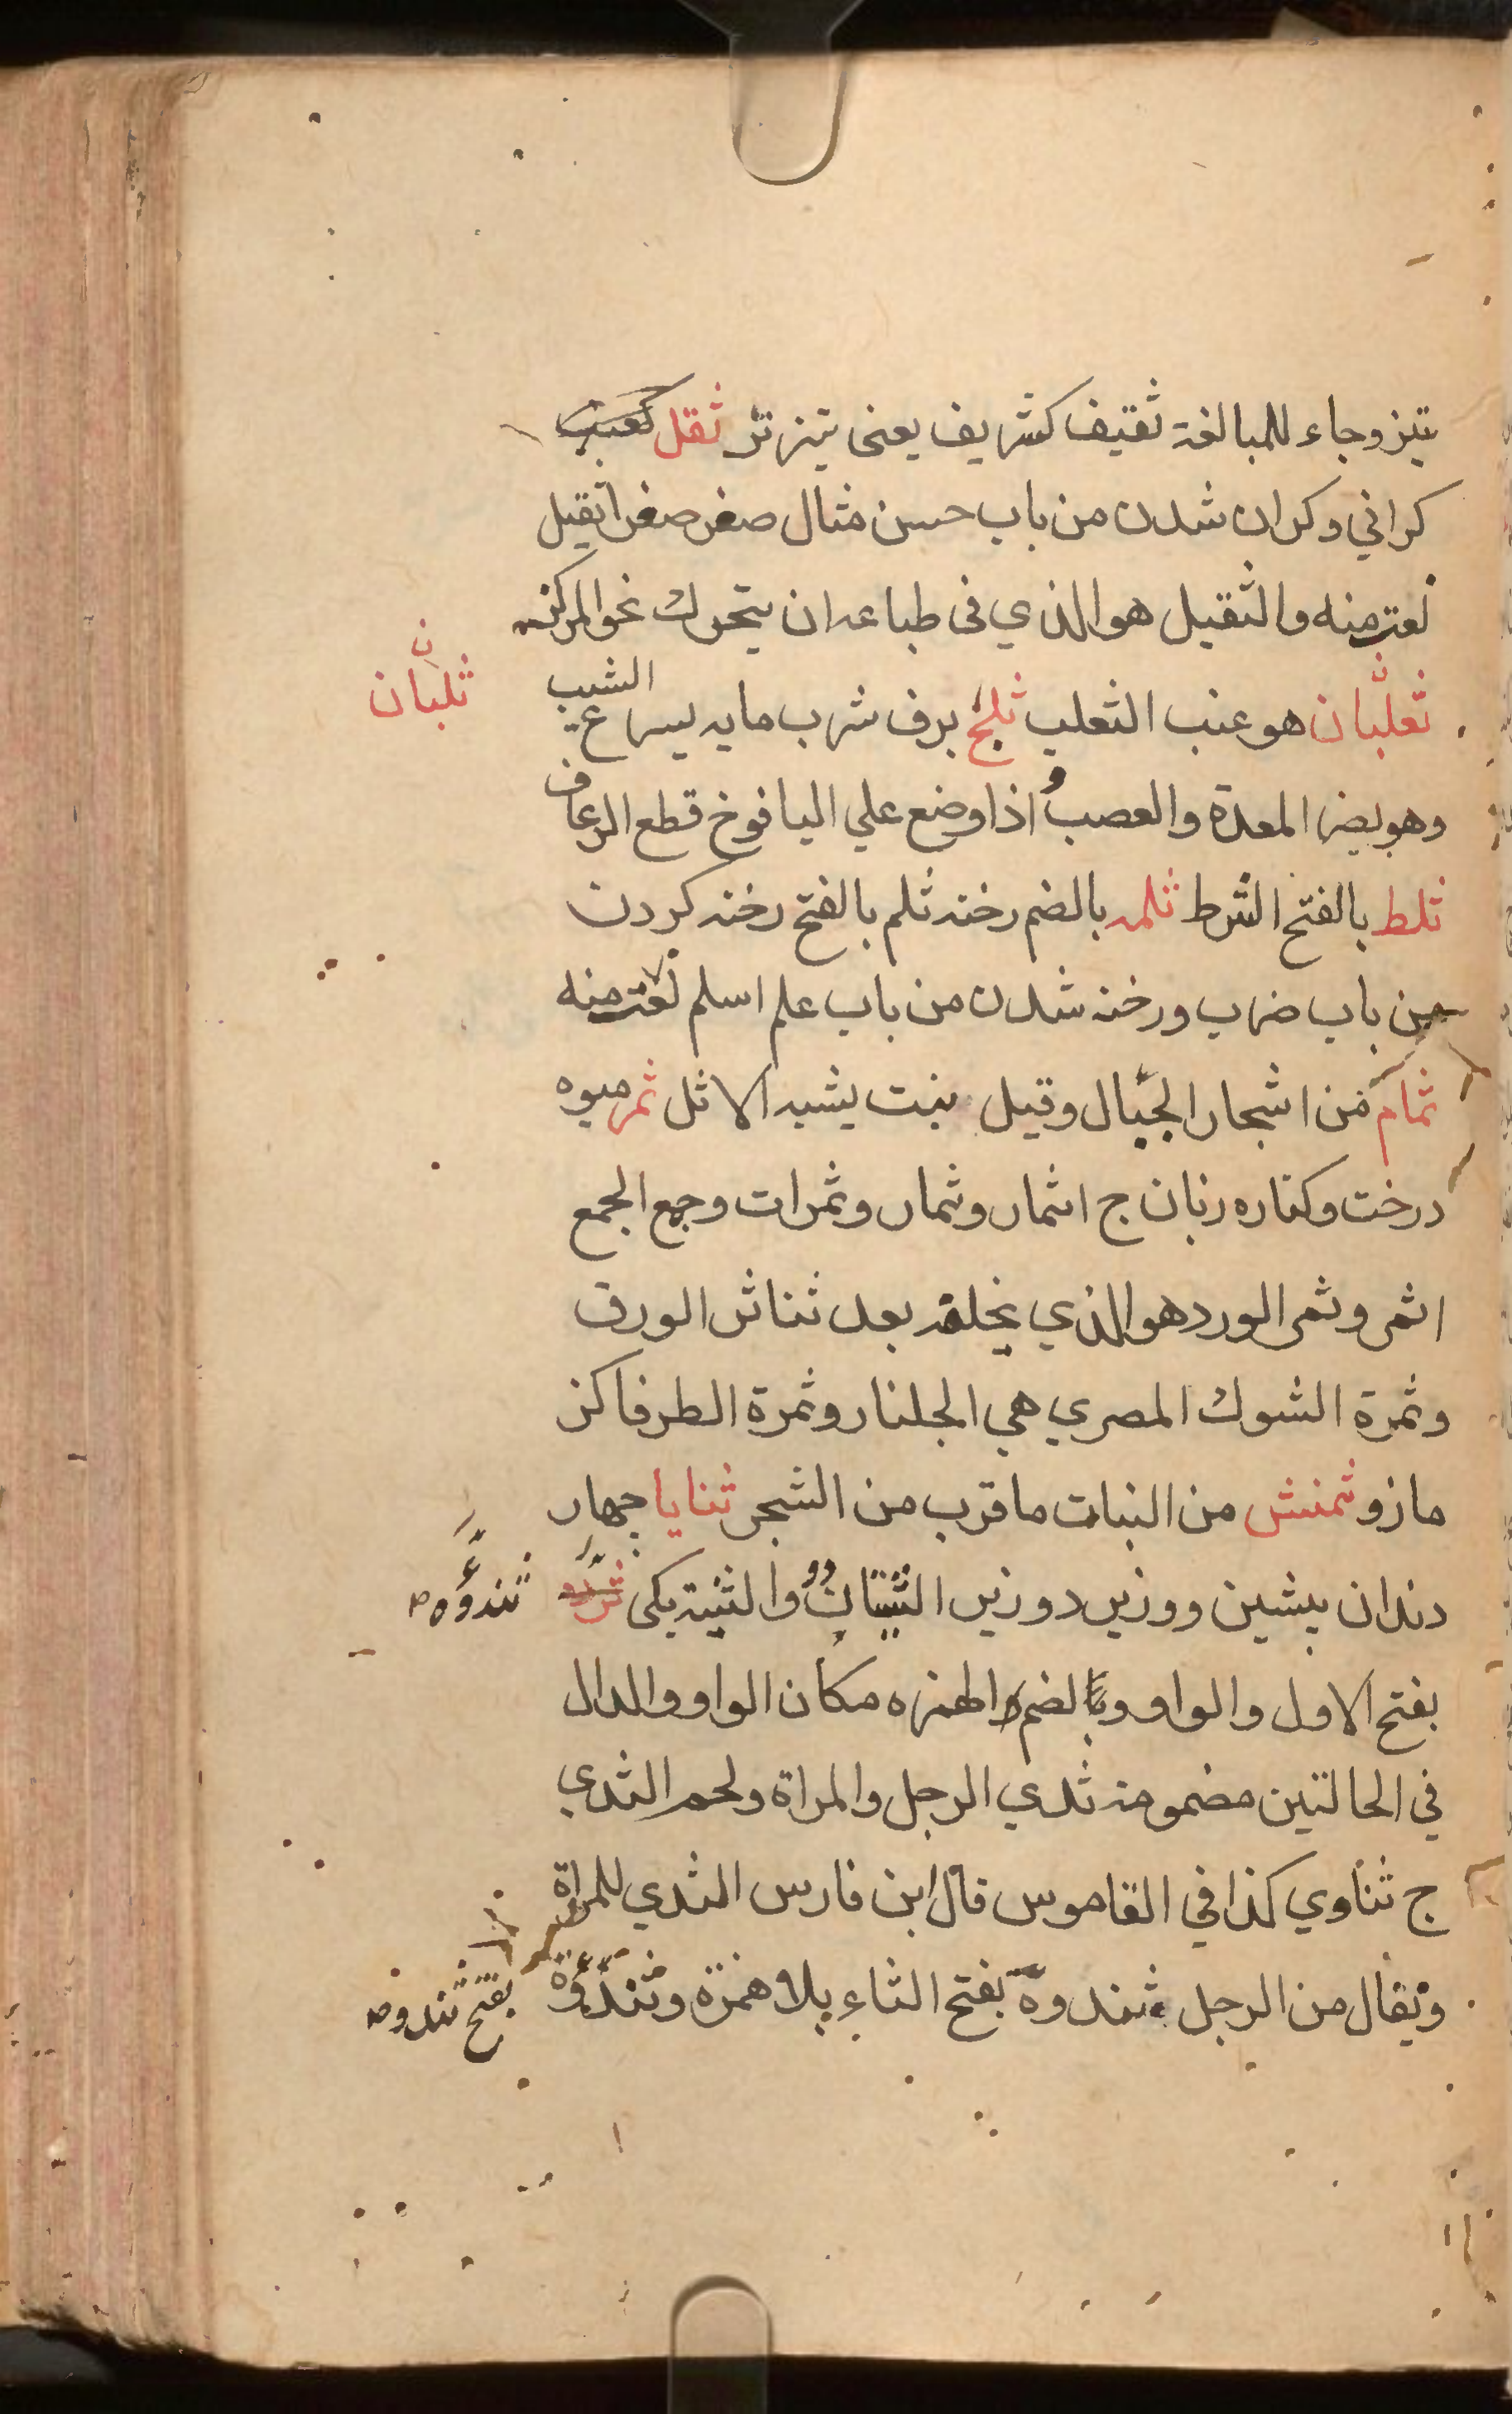 تيز وجاء للمبالغة ثقيف كشريف يعنى تيزتر ثقل كعنب
كراني وكران شدن من باب حسن مثال صغر صغرا ثقيل
نعت منه والثقيل هو الذي فى طباعه ان يتحرك نحو المركز
ثعلبان هو عنب الثعلب ثلج برف شرب مايه يسرع الشيب
ثلبان
وهو يضر المعدة والعصب و اذا وضع علي اليافوخ قطع الرعاف
ثلط بالفتح الثرط ثلمه بالضم رخنه ثلم بالفتح رخنه كردن
من باب ضرب ورخنه شدن من باب علم اسلم نعت منه
ثمام من اشجار الجبال وقيل نبت يشبه الاثل ثمر ميوه
درخت وكناره زبان ج اثمار وثمار وثمرات وجمع الجمع
اثمر وثمر الورد هو الذي يخلفه بعد تناثر الورق
وثمرة الشوك المصري هي الجلنار وثمرة الطرفا كز
مازو ثمنش من النبات ما قرب من الشجر ثنايا جهار
دندان پيشين ووزير دو زير الثنيتان و والثنية يكى
ثندوه
بفتح الاول والواو وبالضم والهمزه مكان الواو والدال
في الحالتين مضمومة ثدي الرجل والمراة ولحم الثدي
ج ثناوي كذا في القاموس قال ابن فارس الثدي للمراة
ويقال من الرجل ثندوة بفتح الثاء بلا همزة وثندؤة
بفتح ثندوه